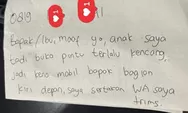 0819 11
bapak/ibu, maaf ya, anak saya
tadi buka pintu terlalu kencang,
jadi kena mobil bapak bagian
kiri depan, saya sertakan WA saya
trims.